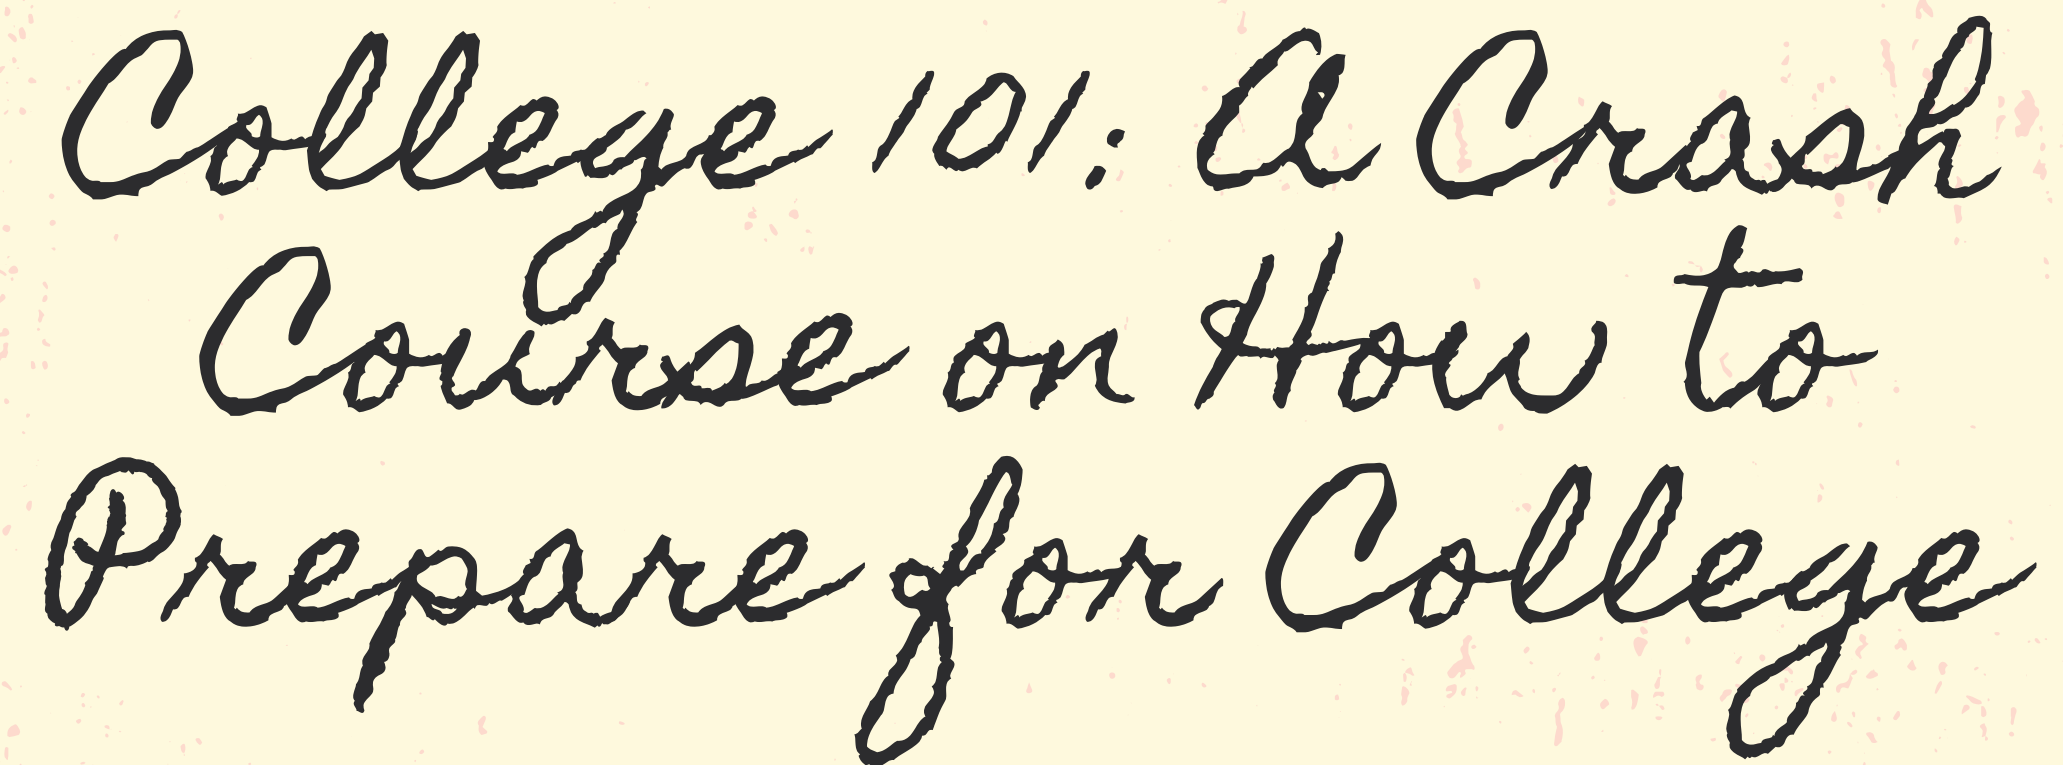 College 101: A Crash
Course on How to
Prepare for College